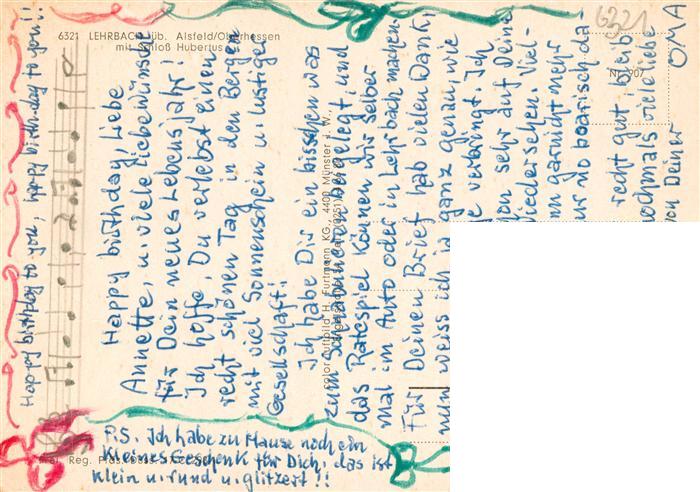 6321 LEHRBACH üb. Alsfeld/Oberhessen
mit Schloß Hubertus
6321
Happy birthday to you, happy birthday to you!!
Happy birthday, liebe
Annette, u. viele liebe Wünsche
für Dein neues Lebensjahr!
Ich hoffe, Du verlebst einen
recht schönen Tag in den Bergen
mit viel Sonnenschein u. lustiger
Gesellschaft!
Ich habe Dir ein bisschen was
zum Schnabulieren beigelegt, und
das Ratespiel können wir selber
mal im Auto oder in Lehrbach machen.
Für Deinen Brief hab vielen Dank,
nun weiss ich ja ganz genau, wie
verbringt. Ich
sehr auf Deine
Wiedersehen. Viel-
garnicht mehr
nur no boarisch da-
recht gut bleib
nochmals viele liebe
von Deiner OMA
P.S. Ich habe zu Hause noch ein
kleines Geschenk für Dich, das ist
klein u. rund u. glitzert!!